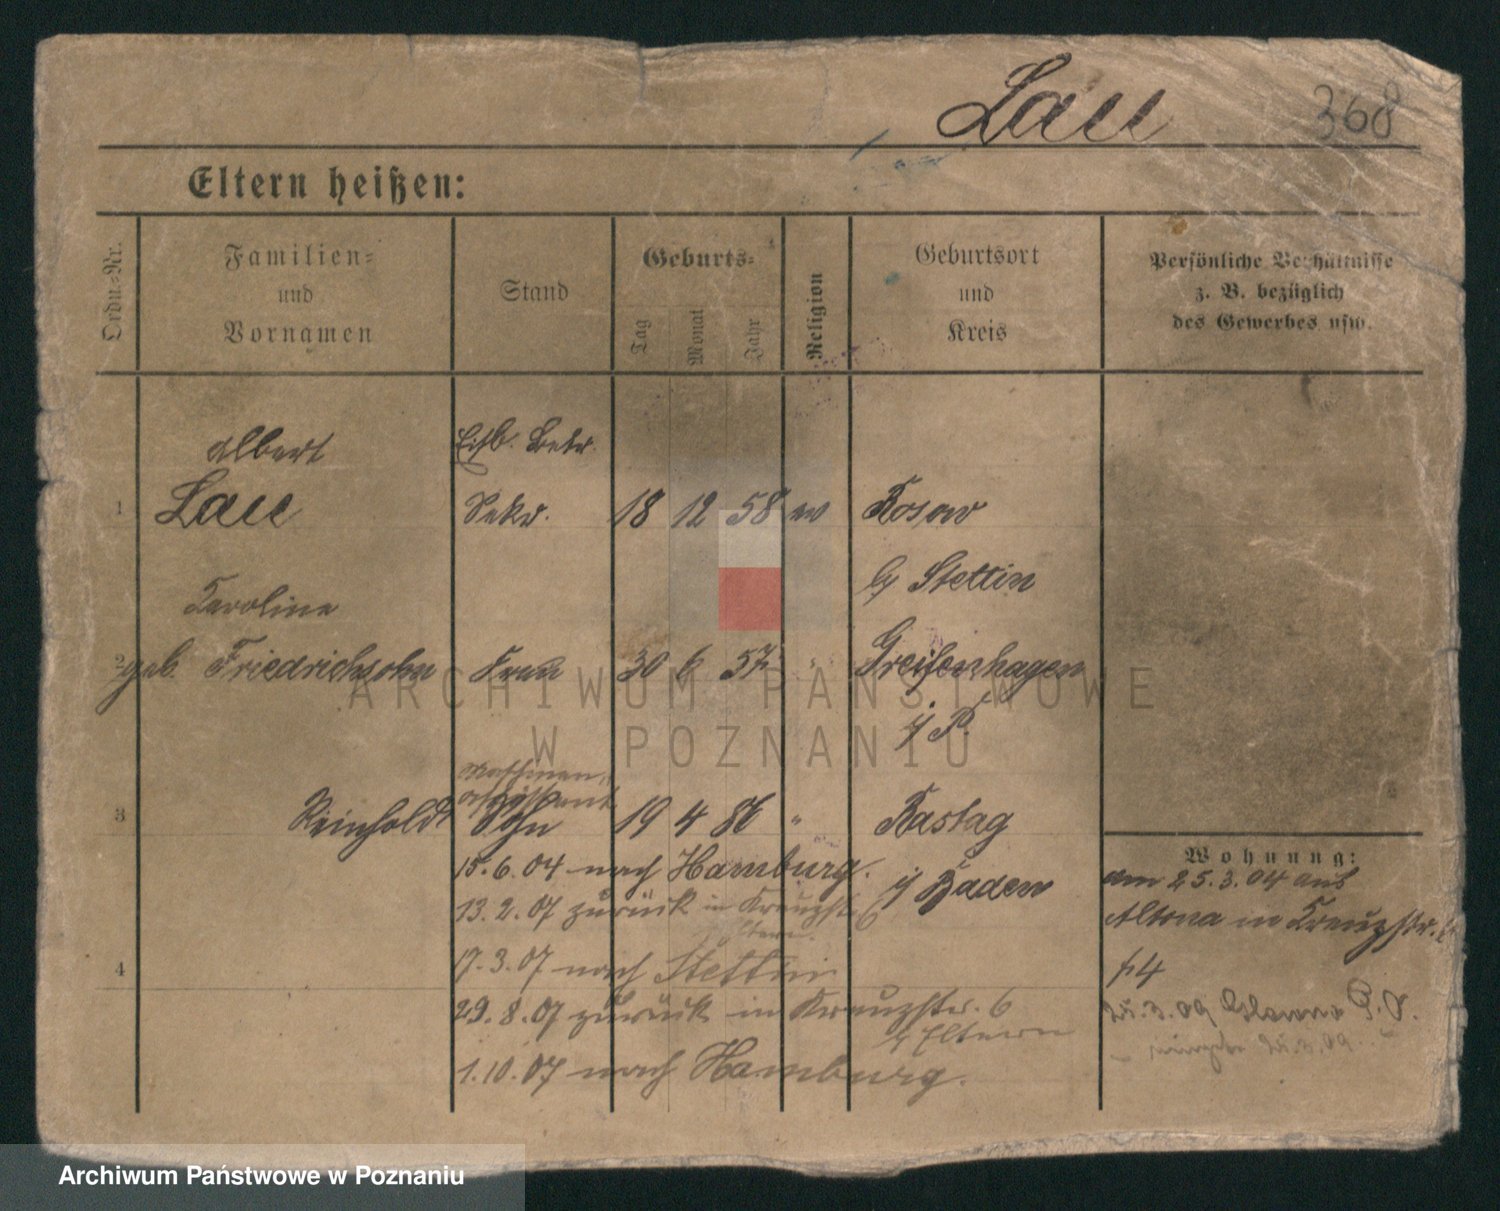 Lau 368
Eltern heißen:
Ordn.=Nr.
Familien=
und
Vornamen
Stand
Geburts=
Tag
Monat
Jahr
Religion
Geburtsort
und
Kreis
Persönliche Verhältnisse
z. B. bezüglich
des Gewerbes usw.
Albert Eisb. Betr.
1 Lau Sekr. 18 12 58 ev Kosow
b/ Stettin
Karoline
2 geb. Friedrichsohn Frau 30 6 57 " Greifenhagen
i/ P.
3 Reinhold Sohn 19 4 86 " Rastag
i/ Baden
15.6.04 nach Hamburg.
13.2.07 zurück in Kreuzstr. 6
Eltern.
4 17.3.07 nach Stettin
29.8.07 zurück in Kreuzstr. 6
b/ Eltern
1.10.07 nach Hamburg.
Wohnung:
am 25.3.04 aus
Altona in Kreuzstr. 6
24.3.09 Glowno P. O.
24.3.09.
ARCHIWUM PAŃSTWOWE
W POZNANIU
Archiwum Państwowe w Poznaniu